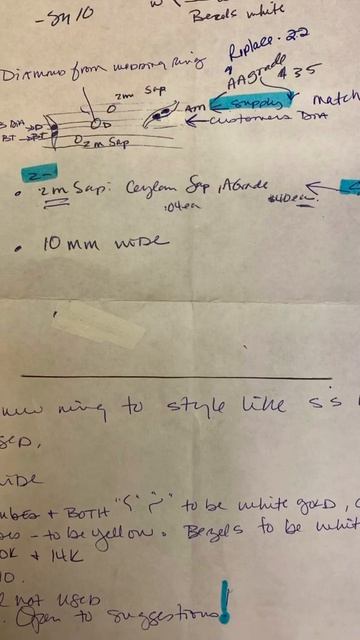 -SZ 10
Bezels white
Replace - 2.2
Diamond from wedding ring
AA Grade $35
2m Sap
Am
Supply
match
D
customers DIA
2m Sap
2-
• 2m Sap: Ceylon Sap, A Grade
.04ea
$40ea.
• 10mm wide
new ring to style like s's
+ BOTH "
" to be white gold,
- to be yellow. Bezels to be whit
0K + 14K
10.
not used
. Open to suggestions!